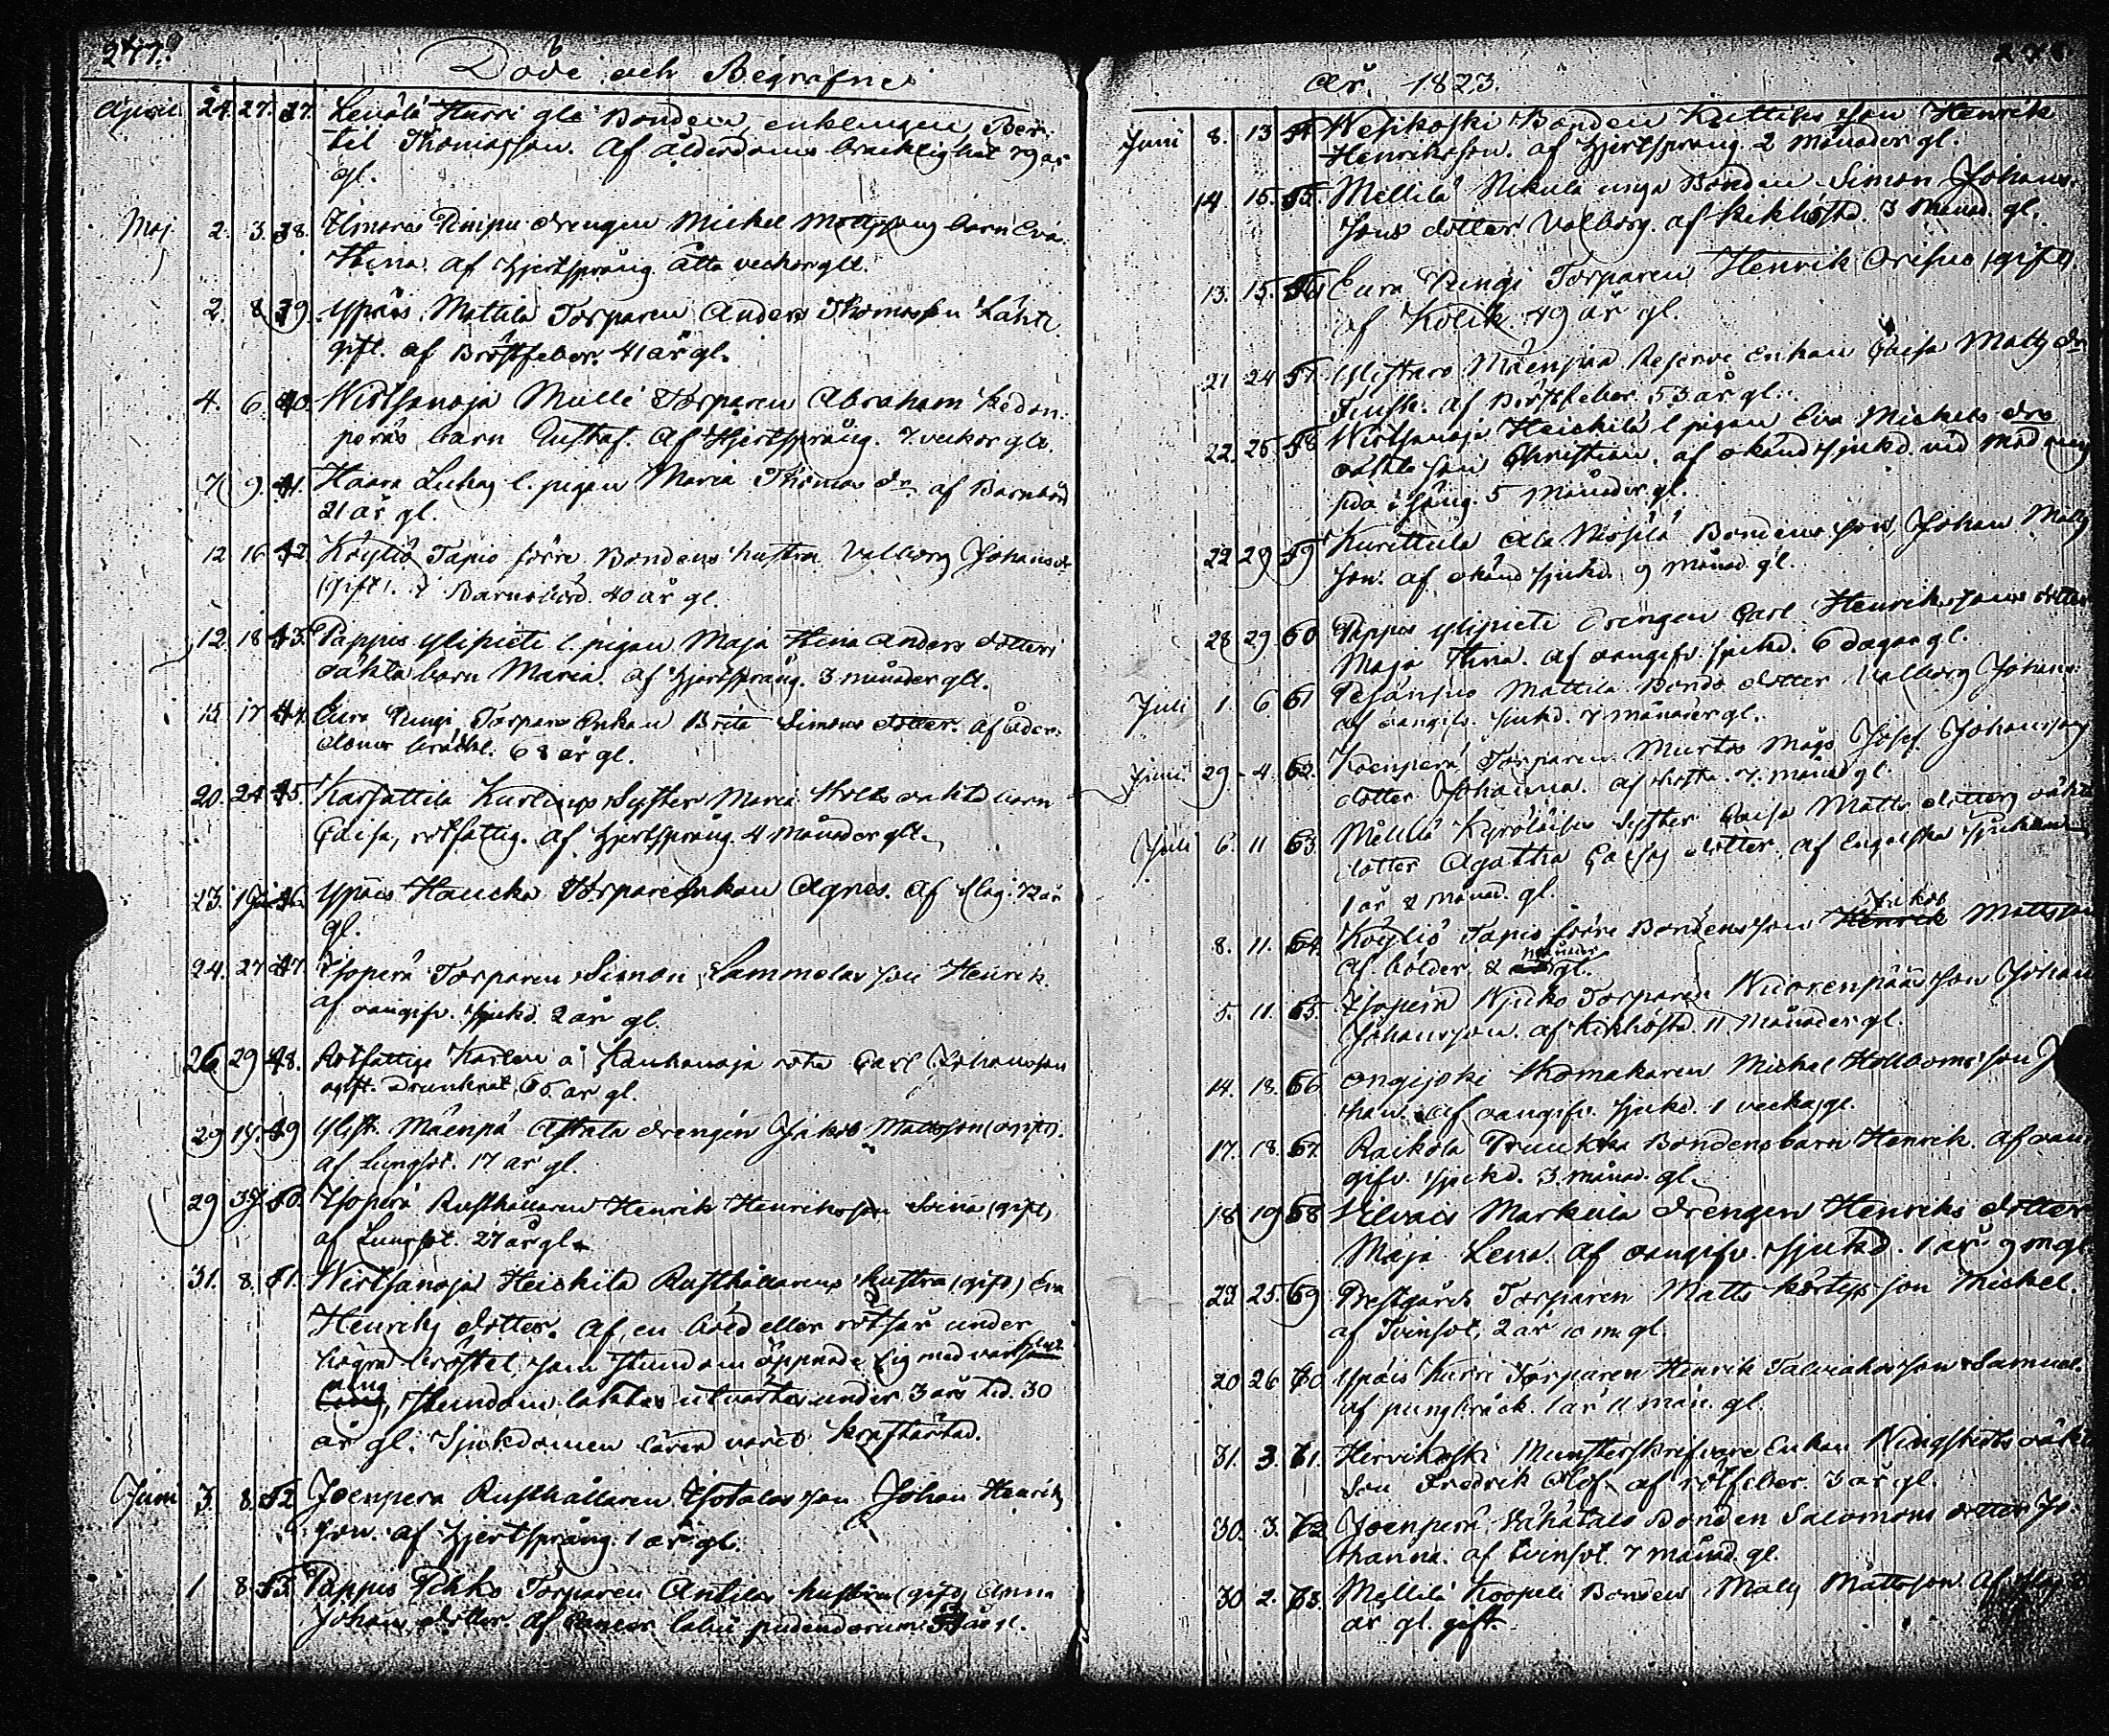 277.
Döde och Begrafne
April 24. 27. 37. Lenälä Harri gla Bonden, enklingen Ber-
til Thomasson. Af ålderdoms bräcklighet 79 år
gl.
Maj. 2. 3. 38. drengen Michel barn Eva
Stina. Af Hjertsprång Åtta veckor glt.
2. 8. 39. Ypäis Mattila Torparen Anders Thomasson Lähte
gift. af Bröstfeber. 41 år gl.
4. 6. 40. Wirtsanoja Mulli Torparen Abraham Kedon-
peräs barn Gustaf. Af Hjertsprång. 7. veckor glt.
7. 9. 41. Haara Luhas l. pigan Maria Thomas dr. af Barnbörd
21 år gl.
12 16 42. Köyliö Tapio förre Bondens hustru Valborg Johans dr
(gift). i Barnsbörd. 40 år gl.
12. 18 43. Pappis Ylipieti l. pigan Maja Stina Anders dotters
oäkta barn Maria. af Hjertsprång. 3. månader glt.
15. 17 44. Eura Pungi Torpare Enkan Brita Simons dotter. Af ålder-
doms bräckl. 68 år gl.
20. 24 45. Karhattila Syster Maria oäkta barn
Caisa, rotfattig. Af Hjertsprång. 4 Månader glt.
23. 46. Ypäis Haucka Torpare Enkan Agnes. Af slag. 72 år
gl.
24. 27 47. Isoperä Torparen Simon Sammelas son Henrik.
af oangifv. sjukd. 2 år gl.
26 29 48. Rotfattige Karlen å Kauhanoja rote Carl Johansson
ogift. Drunknat, 66. år gl.
29 15. 49 Ylist. Mäenpä drengen Jakob Mattsson (ogift).
af Lungsot. 17 år gl.
29 50. Isoperä Rusthållaren Henrik Henriksson (gift)
af Lungsot. 27 år gl.
31. 8. 51. Wirtsanoja Heickilä Rusthållarens hustru (gift) Eva
Henriks dotter. Af, en böld eller rötsår under
högra bröstet som stundom öppnade sig med
ning, stundom läktes utvärtes under 3 års tid. 30
år gl. Sjukdomen lärer varit Kräftartad.
Juni 3. 8. 52. Joenperä Rusthållaren Isotalos son Johan Henriks
son. af Hjertsprång 1 år gl.
1 8. 53. Pappis Pihko Torparen Antilas hustru (gift) Anna
Johans dotter. Af Cancer labii pudendorum år gl.
År. 1823.
Juni 8. 13 54. Wesikoski Bonden Kuttilas son Henrik
Henriksson. af Hjertsprång. 2 Månader gl.
14 15. 55. Mellilä Nikula unga Bonden Simon Johans-
sons dotter Valborg. af Kikhosta. 3 Månad. gl.
13. 15. 56 Eura Pungi Torparen Henrik (gift)
af Kolik 49 år gl.
21 24 57. Ylistaro Mäenpää Reserve enkan Caisa Matts dr
af Bröstfeber 53 år gl.
22. 25. 58 Wirtsanoja Heickilä l pigan Eva Michels drs
oäkta son Christian. af okänd sjukd. vid
sida i säng. 5 Månader gl.
22 29 59 Kurittula Ala Nissilä Bondens son, Johan Matts
son. af okänd sjukd. 9 Månad. gl.
28 29. 60 Pappis Ylipieti drengen Carl Henrikssons dotter
Maja Stina. af oangifv. sjukd. 6 dagar gl.
Juli 1. 6. 61 Pesänsuo Mattila Bonds dotter Valborg Johans
af oangifv. sjukd. 7 månader gl.
Juni 29. 4. 62. Koenperä Torparen Murtos Mågs Josef Johansson
dotter Johanna. af Hosta. 7. månad gl.
Juli 6. 11 63. Mellilä Kyröläisen Syster Caisa Matts dotters oäkta
dotter Agatha dotter. af Engelska Sjukan
1 år 8 månad. gl.
8. 11. 64. Köyliö Tapio förre Bondens son Henrik Jakob Mattsson
af bölder, 8 månader gl.
5. 11. 65. Isoperä Torparen Wuorenpään son Johan
Johansson. af Kikhosta. 11 Månader gl.
14. 18. 66 Ongijoki Skomakaren Michel Hellboms son
han. af oangifv. sjukd. 1 vecka gl.
17. 18. 67. Raikola Bondens barn Henrik. af oan-
gifv. sjukd. 3. månad. gl.
18 19 68 Wilvais Markula drengen Henriks dotter
Maja Lena. Af oangifv. sjukd. 1 år 9 m gl
23. 25. 69 Prestgårds Torparen Matts son Michel.
af Tvinsot, 2 år 10 m. gl.
20 26 70 Ypäis Kurri Torparen Henrik Talviahos son Samuel.
af pungbråck. 1 år 11 mån. gl.
31. 3. 71. Hirvikoski Munsterskrifvare Enkan oäkta
son Fredrik Olof. af rötfeber. 3 år gl.
30. 3. 72. Joenperä Vähätalo Bonden Salomons dotter Jo-
hanna. af tvinsot. 7 månad. gl.
30 2. 73. Mellilä Koopeli Bonden Matts Mattsson. Af slag
år gl. gift.